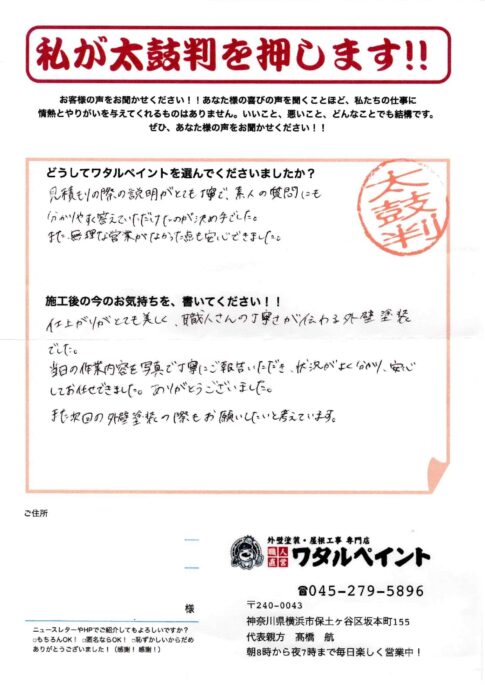 私が太鼓判を押します!!
お客様の声をお聞かせください！！あなた様の喜びの声を聞くことほど、私たちの仕事に
情熱とやりがいを与えてくれるものはありません。いいこと、悪いこと、どんなことでも結構です。
ぜひ、あなた様の声をお聞かせください！！
どうしてワタルペイントを選んでくださいましたか？
太鼓判
見積もりの際の説明がとても丁寧で、素人の質問にも
分かりやすく答えていただけたのが決め手でした。
また、無理な営業がなかった点も安心できました。
施工後の今のお気持ちを、書いてください！！
仕上がりがとても美しく、職人さんの丁寧さが伝わる外壁塗装
でした。
当日の作業内容を写真で丁寧にご報告いただき、状況がよく分かり、安心
してお任せできました。ありがとうございました。
また次回の外壁塗装の際もお願いしたいと考えています。
ご住所
様
ニュースレターやHPでご紹介してもよろしいですか？
□もちろんOK！ □匿名ならOK！ □恥ずかしいからだめ
ありがとうございました！（感謝！感謝！）
外壁塗装・屋根工事 専門店
職人直営 ワタルペイント
☎045-279-5896
〒240-0043
神奈川県横浜市保土ヶ谷区坂本町155
代表親方 髙橋 航
朝8時から夜7時まで毎日楽しく営業中！